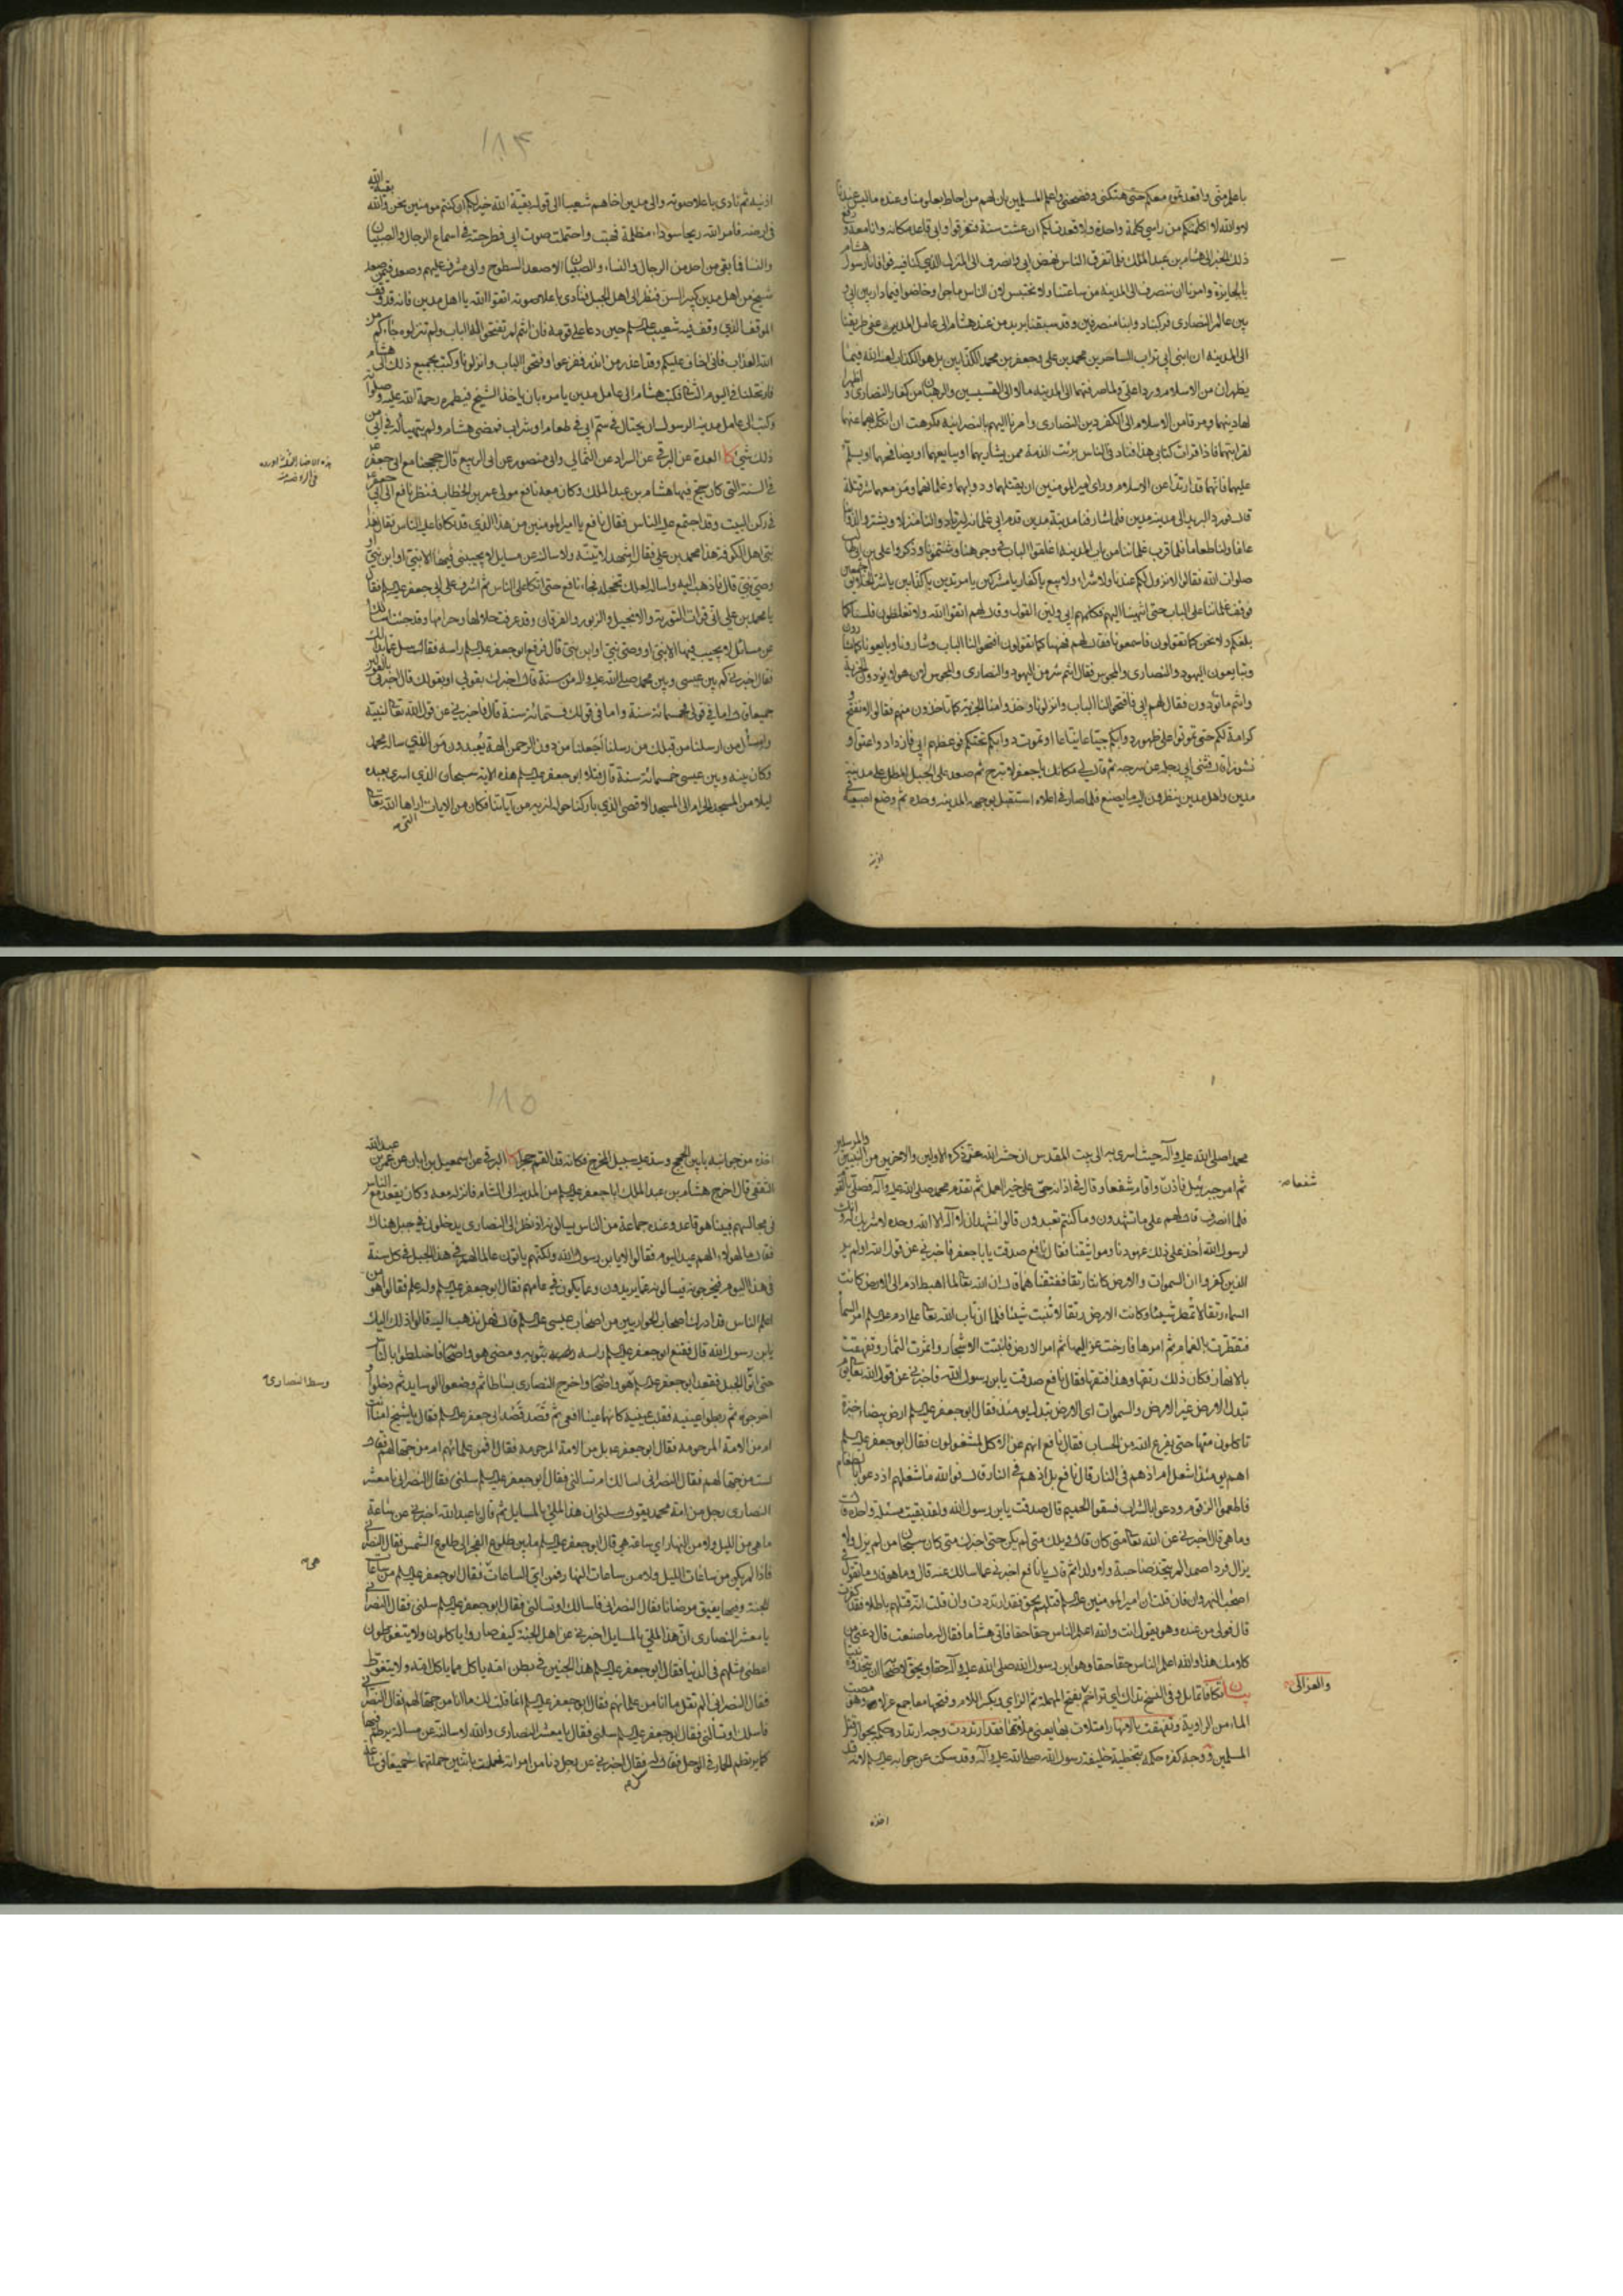 باعلم مني واقعد بمن معكم حتى هتكني وفضحني واعلم المسلمين بان لهم من احاط بعلومنا وعنده ما ليس عندنا
لا والله لا اكلمكم من راسي كلمة واحدة ولا قعدت لكم ان عشت سنة فتفرقوا وابي قاعد مكانه وانا معه ورفع
ذلك الخبر الى هشام بن عبد الملك فلما تفرق الناس نهض ابي وانصرف الى المنزل الذي كنا فيه فوافانا رسول هشام
بالجايزة وامرنا ان ننصرف الى المدينة من ساعتنا ولا نحتبس لان الناس ماجوا وخاضوا فيما دار بين ابي و
بين عالم النصارى فركبنا دوابنا منصرفين وقد سبقنا بريد من عند هشام الى عامل المدين على طريقنا
الى المدينة ان ابني ابي تراب الساحرين محمد بن علي وجعفر بن محمد الكذابين بل هو الكذاب لعنه الله فيما
يظهران من الاسلام وردا علي ولما صرفتهما الى المدينة مالا الى القسيسين والرهبان من كفار النصارى واظهرا
لهما دينهما ومرقا من الاسلام الى الكفر دين النصارى وامرنا اليهم بالنصرانية فكرهت ان انكل بهما
لقرابتهما فاذا قرات كتابي هذا فناد في الناس برئت الذمة ممن يشاريهما او يبايعهما او يصافحهما او يسلم
عليهما فانهما قد ارتدا عن الاسلام وراى امير المومنين ان يقتلهما ودوابهما وغلمانهما ومن معهما شر قتلة
قال فورد البريد الى مدينة مدين فلما شارفنا مدينة مدين قدم ابي غلمانه ليرتادوا لنا منزلا ويشتروا لدوابنا
علفا ولنا طعاما فلما قرب غلماننا من باب المدينة اغلقوا الباب في وجوهنا وشتمونا وذكروا علي بن ابي طالب
صلوات الله فقالوا لا نزول لكم عندنا ولا شراء ولا بيع يا كفار يا مشركين يا مرتدين يا كذابين يا شر الخلايق اجمعين
فوقف غلماننا على الباب حتى انتهينا اليهم فكلمهم ابي ولين القول وقال لهم اتقوا الله ولا تغلطوا فلسنا كما
بلغكم ولا نحن كما تقولون فاسمعونا فقال لهم فهبنا كما تقولون افتحوا لنا الباب وشارونا وبايعونا كما تشارون
وتبايعون اليهود والنصارى والمجوس فقالوا انتم شر من اليهود والنصارى والمجوس لان هولاء يودون الجزية
وانتم ما تودون فقال لهم ابي فافتحوا لنا الباب وانزلونا وخذوا منا الجزية كما تاخذون منهم فقالوا لا نفتح ولا
كرامة لكم حتى تموتوا على ظهور دوابكم جياعا نياعا او تموت دوابكم تحتكم فوعظهم ابي فازدادوا عتوا و
نشوزا قال فثنى ابي رجله عن سرجه ثم قال لي مكانك يا جعفر لا تبرح ثم صعد على الجبل المطل على مدينة
مدين واهل مدين ينظرون اليه ما يصنع فلما صار في اعلاه استقبل بوجهه المدينة وحده ثم وضع اصبعيه في
اذنيه
۱۸۴
اذنيه ثم نادى باعلا صوته والى مدين اخاهم شعيبا الى قوله بقية الله خير لكم ان كنتم مومنين نحن والله بقية الله
في ارضه فامر الله ريحا سوداء مظلمة فهبت واحتملت صوت ابي فطرحته في اسماع الرجال والصبيان
والنساء فما بقي من احد من الرجال والنساء والصبيان الا صعد السطوح وابي مشرف عليهم وصعد فيمن صعد
شيخ من اهل مدين كبير السن فنظر الى اهل الجبل فنادى باعلا صوته اتقوا الله يا اهل مدين فانه قد وقف
الموقف الذي وقف فيه شعيب عليه السلم حين دعا على قومه فان انتم لم تفتحوا له الباب ولم تنزلوه جاءكم من
الله العذاب فاني اخاف عليكم وقد اعذر من انذر ففزعوا وفتحوا الباب وانزلونا وكتب بجميع ذلك الى هشام
فارتحلنا في اليوم الثاني فكتب هشام الى عامل مدين يامره بان ياخذ الشيخ فيطمره رحمة الله عليه وصلواته
وكتب الى عامل مدينة الرسول ان يحتال في سم ابي في طعام او شراب فمضى هشام ولم يتهيا له في ابي من
ذلك شيء كا العدة عن البرقي عن السراد عن الثمالي وابي منصور عن ابي الربيع قال حججنا مع ابي جعفر ع
في السنة التي كان حج فيها هشام بن عبد الملك وكان معه نافع مولى عمر بن الخطاب فنظر نافع الى ابي جعفر ع
في ركن البيت وقد اجتمع عليه الناس فقال نافع يا امير المومنين من هذا الذي قد تكافا عليه الناس فقال هذا
نبي اهل الكوفة هذا محمد بن علي فقال اشهد لاتينه ولاسالنه عن مسايل لا يجيبني فيها الا نبي او ابن نبي او
وصي نبي قال فاذهب اليه واساله لعلك تخجله فجاء نافع حتى اتكا على الناس ثم اشرف على ابي جعفر عليه السلم فقال
يا محمد بن علي اني قرات التورية والانجيل والزبور والفرقان وقد عرفت حلالها وحرامها وقد جئت اسالك
عن مسائل لا يجيب فيها الا نبي او وصي نبي او ابن نبي قال فرفع ابو جعفر عليه السلم راسه فقال سل عما بدا لك
فقال اخبرني كم بين عيسى وبين محمد صلى الله عليه واله من سنة قال اخبرك بقولي او بقولك قال اخبرني بالقولين
جميعا قال اما في قولي فخمسمائة سنة واما في قولك فستمائة سنة قال فاخبرني عن قول الله تعالى لنبيه
واسأل من ارسلنا من قبلك من رسلنا اجعلنا من دون الرحمن الهة يعبدون من الذي ساله محمد
وكان بينه وبين عيسى خمسمائة سنة قال فتلا ابو جعفر عليه السلم هذه الاية سبحان الذي اسرى بعبده
ليلا من المسجد الحرام الى المسجد الاقصى الذي باركنا حوله لنريه من آياتنا فكان من الايات التي اراها الله تعالى
محمدا صلى الله عليه وآله حيث اسرى به الى بيت المقدس ان حشر الله عز ذكره الاولين والاخرين من النبيين والمرسلين
ثم امر جبرئيل فاذن واقام شفعا وقال في اذانه حي على خير العمل ثم تقدم محمد صلى الله عليه وآله فصلى بالقوم
شفعا
فلما انصرف قال لهم على ما تشهدون وما كنتم تعبدون قالوا نشهد ان لا اله الا الله وحده لا شريك له وانك
لرسول الله اخذ على ذلك عهودنا ومواثيقنا فقال نافع صدقت يا با جعفر فاخبرني عن قول الله اولم ير
الذين كفروا ان السموات والارض كانتا رتقا ففتقناهما قال ان الله تعالى لما اهبط ادم الى الارض كانت
السماء رتقا لا تمطر شيئا وكانت الارض رتقا لا تنبت شيئا فلما ان تاب الله تعالى على ادم عليه السلم امر السماء
فتقطرت بالغمام ثم امرها فارخت عزاليها ثم امر الارض فانبتت الاشجار واثمرت الثمار وتفهقت
بالانهار فكان ذلك رتقها وهذا فتقها فقال نافع صدقت يا بن رسول الله فاخبرني عن قول الله تعالى يوم
تبدل الارض غير الارض والسموات اى الارض تبدل يومئذ فقال ابو جعفر عليه السلم ارض بيضاء خبزة
تاكلون منها حتى يفرغ الله من الحساب فقال نافع انهم عن الاكل لمشغولون فقال ابو جعفر عليه السلم
اهم يومئذ اشغل ام اذ هم في النار قال نافع بل اذ هم في النار قال فوالله ما شغلهم اذ دعوا بالطعام
فاطعموا الزقوم ودعوا بالشراب فسقوا الحميم قال صدقت يا بن رسول الله ولقد بقيت مسئلة واحدة قال
وما هي قال اخبرني عن الله تعالى متى كان قال ويلك متى لم يكن حتى اخبرك متى كان سبحان من لم يزل ولا
يزال فردا صمدا لم يتخذ صاحبة ولا ولدا ثم قال يا نافع اخبرني عما اسالك عنه قال وما هو قال ما تقول في
اصحاب النهروان فان قلت ان امير المومنين عليه السلم قتلهم بحق فقد ارتددت وان قلت انه قتلهم باطلا فقد كفرت
قال فولى من عنده وهو يقول انت والله اعلم الناس حقا حقا فاتى هشاما فقال له ما صنعت قال دعني من
كلامك هذا والله اعلم الناس حقا حقا وهو ابن رسول الله صلى الله عليه وآله حقا ويحق لاصحابه ان يتخذوه نبيا
والعزالى
الماء من الراوية وتفهقت بالانهار امتلات
اخذه
۱۸۵
الثقفي قال اخرج هشام بن عبد الملك ابا جعفر عليه السلم من المدينة الى الشام فانزله معه وكان يقعد مع الناس
في مجالسهم فبينا هو قاعد وعنده جماعة من الناس يسالونه اذ نظر الى النصارى يدخلون في جبل هناك
فقال ما لهولاء الهم عيد اليوم فقالوا لا يا بن رسول الله ولكنهم ياتون عالما لهم في هذا الجبل في كل سنة
في هذا اليوم فيخرجونه فيسالونه عما يريدون وعما يكون في عامهم فقال ابو جعفر عليه السلم وله علم فقالوا هو من
اعلم الناس قد ادرك اصحاب الحواريين من اصحاب عيسى عليه السلم قال فهل نذهب اليه قالوا ذلك اليك
يا بن رسول الله قال فقنع ابو جعفر عليه السلم راسه بثوبه ومضى هو واصحابه فاختلطوا بالناس
حتى اتوا الجبل فقعد ابو جعفر عليه السلم هو واصحابه واخرج النصارى بساطا ثم وضعوا الوسايد ثم دخلوا و
وسط النصارى
اخرجوه ثم ربطوا عينيه فقلب عينيه كانهما عينا افعى ثم قصد قصد ابي جعفر عليه السلم فقال يا شيخ امنا انت
ام من الامة المرحومة فقال ابو جعفر ع بل من الامة المرحومة فقال افمن علمائهم ام من جهالهم فقال
لست من جهالهم فقال النصراني اسالك ام تسالني فقال ابو جعفر عليه السلم سلني فقال النصراني يا معشر
النصارى رجل من امة محمد يقول سلني ان هذا لملئ بالمسايل ثم قال يا عبد الله اخبرني عن ساعة
ما هي من الليل ولا من النهار اي ساعة هي قال ابو جعفر عليه السلم ما بين طلوع الفجر الى طلوع الشمس فقال النصراني
فاذا لم يكن من ساعات الليل ولا من ساعات النهار فمن اي الساعات فقال ابو جعفر عليه السلم من ساعات
هي
الجنة وفيها يفيق مرضانا فقال النصراني فاسالك او تسالني فقال ابو جعفر عليه السلم سلني فقال النصراني
يا معشر النصارى ان هذا لملئ بالمسايل اخبرني عن اهل الجنة كيف صاروا ياكلون ولا يتغوطون
اعطني مثلهم في الدنيا فقال ابو جعفر عليه السلم هذا الجنين في بطن امه ياكل مما ياكل امه ولا يتغوط
فقال النصراني الم تقل ما انا من علمائهم فقال ابو جعفر عليه السلم انما قلت لك ما انا من جهالهم فقال النصراني
فاسالك او تسالني فقال ابو جعفر عليه السلم سلني فقال يا معشر النصارى والله لاسالنه عن مسالة يرتطم فيها
كما يرتطم الحمار في الوحل فقال له سل فقال اخبرني عن رجل دنا من امراته فحملت باثنين حملتهما جميعا في ساعة